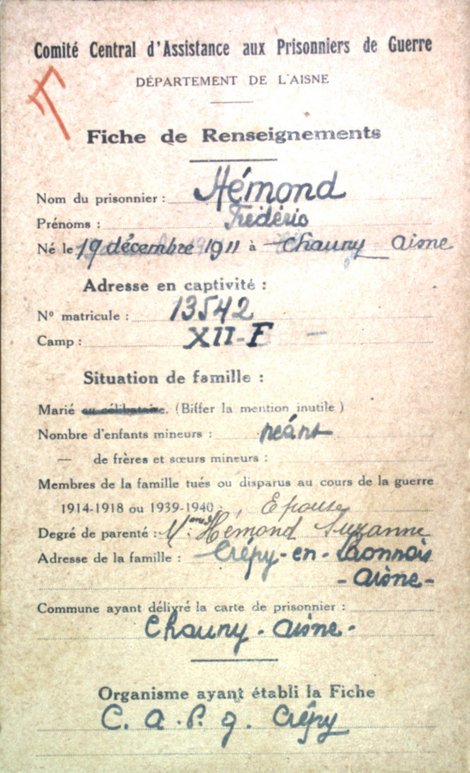 Comité Central d'Assistance aux Prisonniers de Guerre
DÉPARTEMENT DE L'AISNE
Fiche de Renseignements
Nom du prisonnier : Hémond
Prénoms : Frédéric
Né le 19 décembre 1911 à Chauny Aisne
Adresse en captivité :
N° matricule : 13542
Camp : XII-F
Situation de famille :
Marié ou célibataire. (Biffer la mention inutile)
Nombre d'enfants mineurs : néant
— de frères et sœurs mineurs :
Membres de la famille tués ou disparus au cours de la guerre
1914-1918 ou 1939-1940 : Epouse
Degré de parenté : Mme Hémond Suzanne
Adresse de la famille : Crépy-en-Laonnois
- Aisne -
Commune ayant délivré la carte de prisonnier :
Chauny - Aisne -
Organisme ayant établi la Fiche
C. A. P. G. Crépy